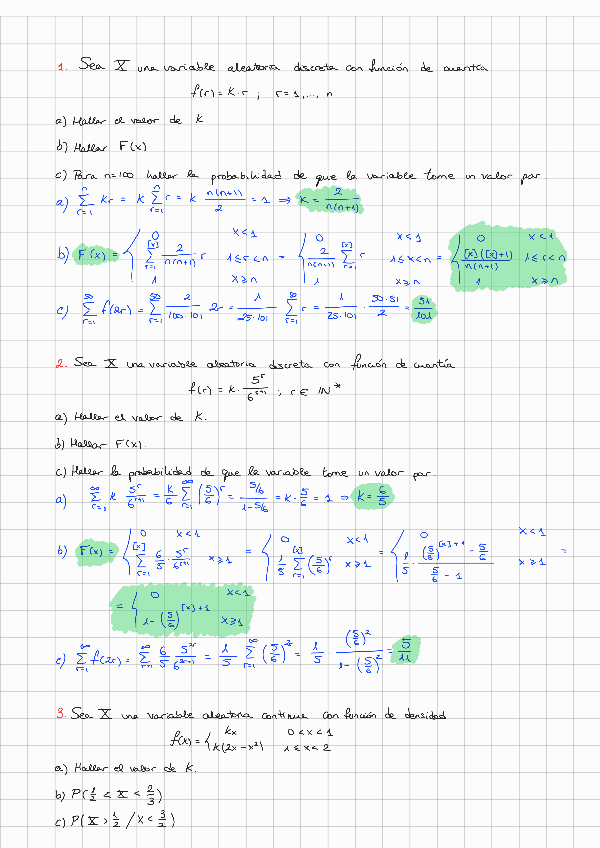 1. Sea X una variable aleatoria discreta con función de cuantía
f(r) = K·r ; r = 1, ..., n
a) Hallar el valor de K
b) Hallar F(x)
c) Para n=100 hallar la probabilidad de que la variable tome un valor par.
a) ∑_{r=1}^{n} Kr = K ∑_{r=1}^{n} r = K n(n+1)/2 = 1 ⇒ K = 2/n(n+1)
b) F(x) = { 0 x<1 ; ∑_{r=1}^{[x]} 2/n(n+1) · r 1≤r<n ; 1 x≥n = { 0 x<1 ; 2/n(n+1) ∑_{r=1}^{[x]} r 1≤x<n ; 1 x≥n = { 0 x<1 ; [x]([x]+1)/n(n+1) 1≤r<n ; 1 x≥n
c) ∑_{r=1}^{50} f(2r) = ∑_{r=1}^{50} 2/100·101 2r = 1/25·101 ∑_{r=1}^{50} r = 1/25·101 · 50·51/2 = 51/101
2. Sea X una variable aleatoria discreta con función de cuantía
f(r) = K · 5^r/6^{r+1} ; r ∈ IN*
a) Hallar el valor de K.
b) Hallar F(x).
c) Hallar la probabilidad de que la variable tome un valor par.
a) ∑_{r=1}^{∞} K 5^r/6^{r+1} = K/6 ∑_{r=1}^{∞} (5/6)^r = 5/6/1-5/6 = K · 5/6 = 1 ⇒ K = 6/5
b) F(x) = { 0 x<1 ; ∑_{r=1}^{[x]} 6/5 · 5^r/6^{r+1} x≥1 = { 0 x<1 ; 1/5 ∑_{r=1}^{[x]} (5/6)^r x≥1 = { 0 x<1 ; 1/5 · (5/6)^{[x]+1} - 5/6 / 5/6 - 1 x≥1 =
= { 0 x<1 ; 1-(5/6)^{[x]+1} x≥1
c) ∑_{r=1}^{∞} f(2r) = ∑_{r=1}^{∞} 6/5 5^{2r}/6^{2r+1} = 1/5 ∑_{r=1}^{∞} (5/6)^{2r} = 1/5 · (5/6)^2/1-(5/6)^2 = 5/11
3. Sea X una variable aleatoria continua con función de densidad
f(x) = { Kx 0<x<1 ; K(2x-x²) 1≤x<2
a) Hallar el valor de K.
b) P(1/2 < X < 2/3)
c) P(X > 1/2 / X < 3/2)